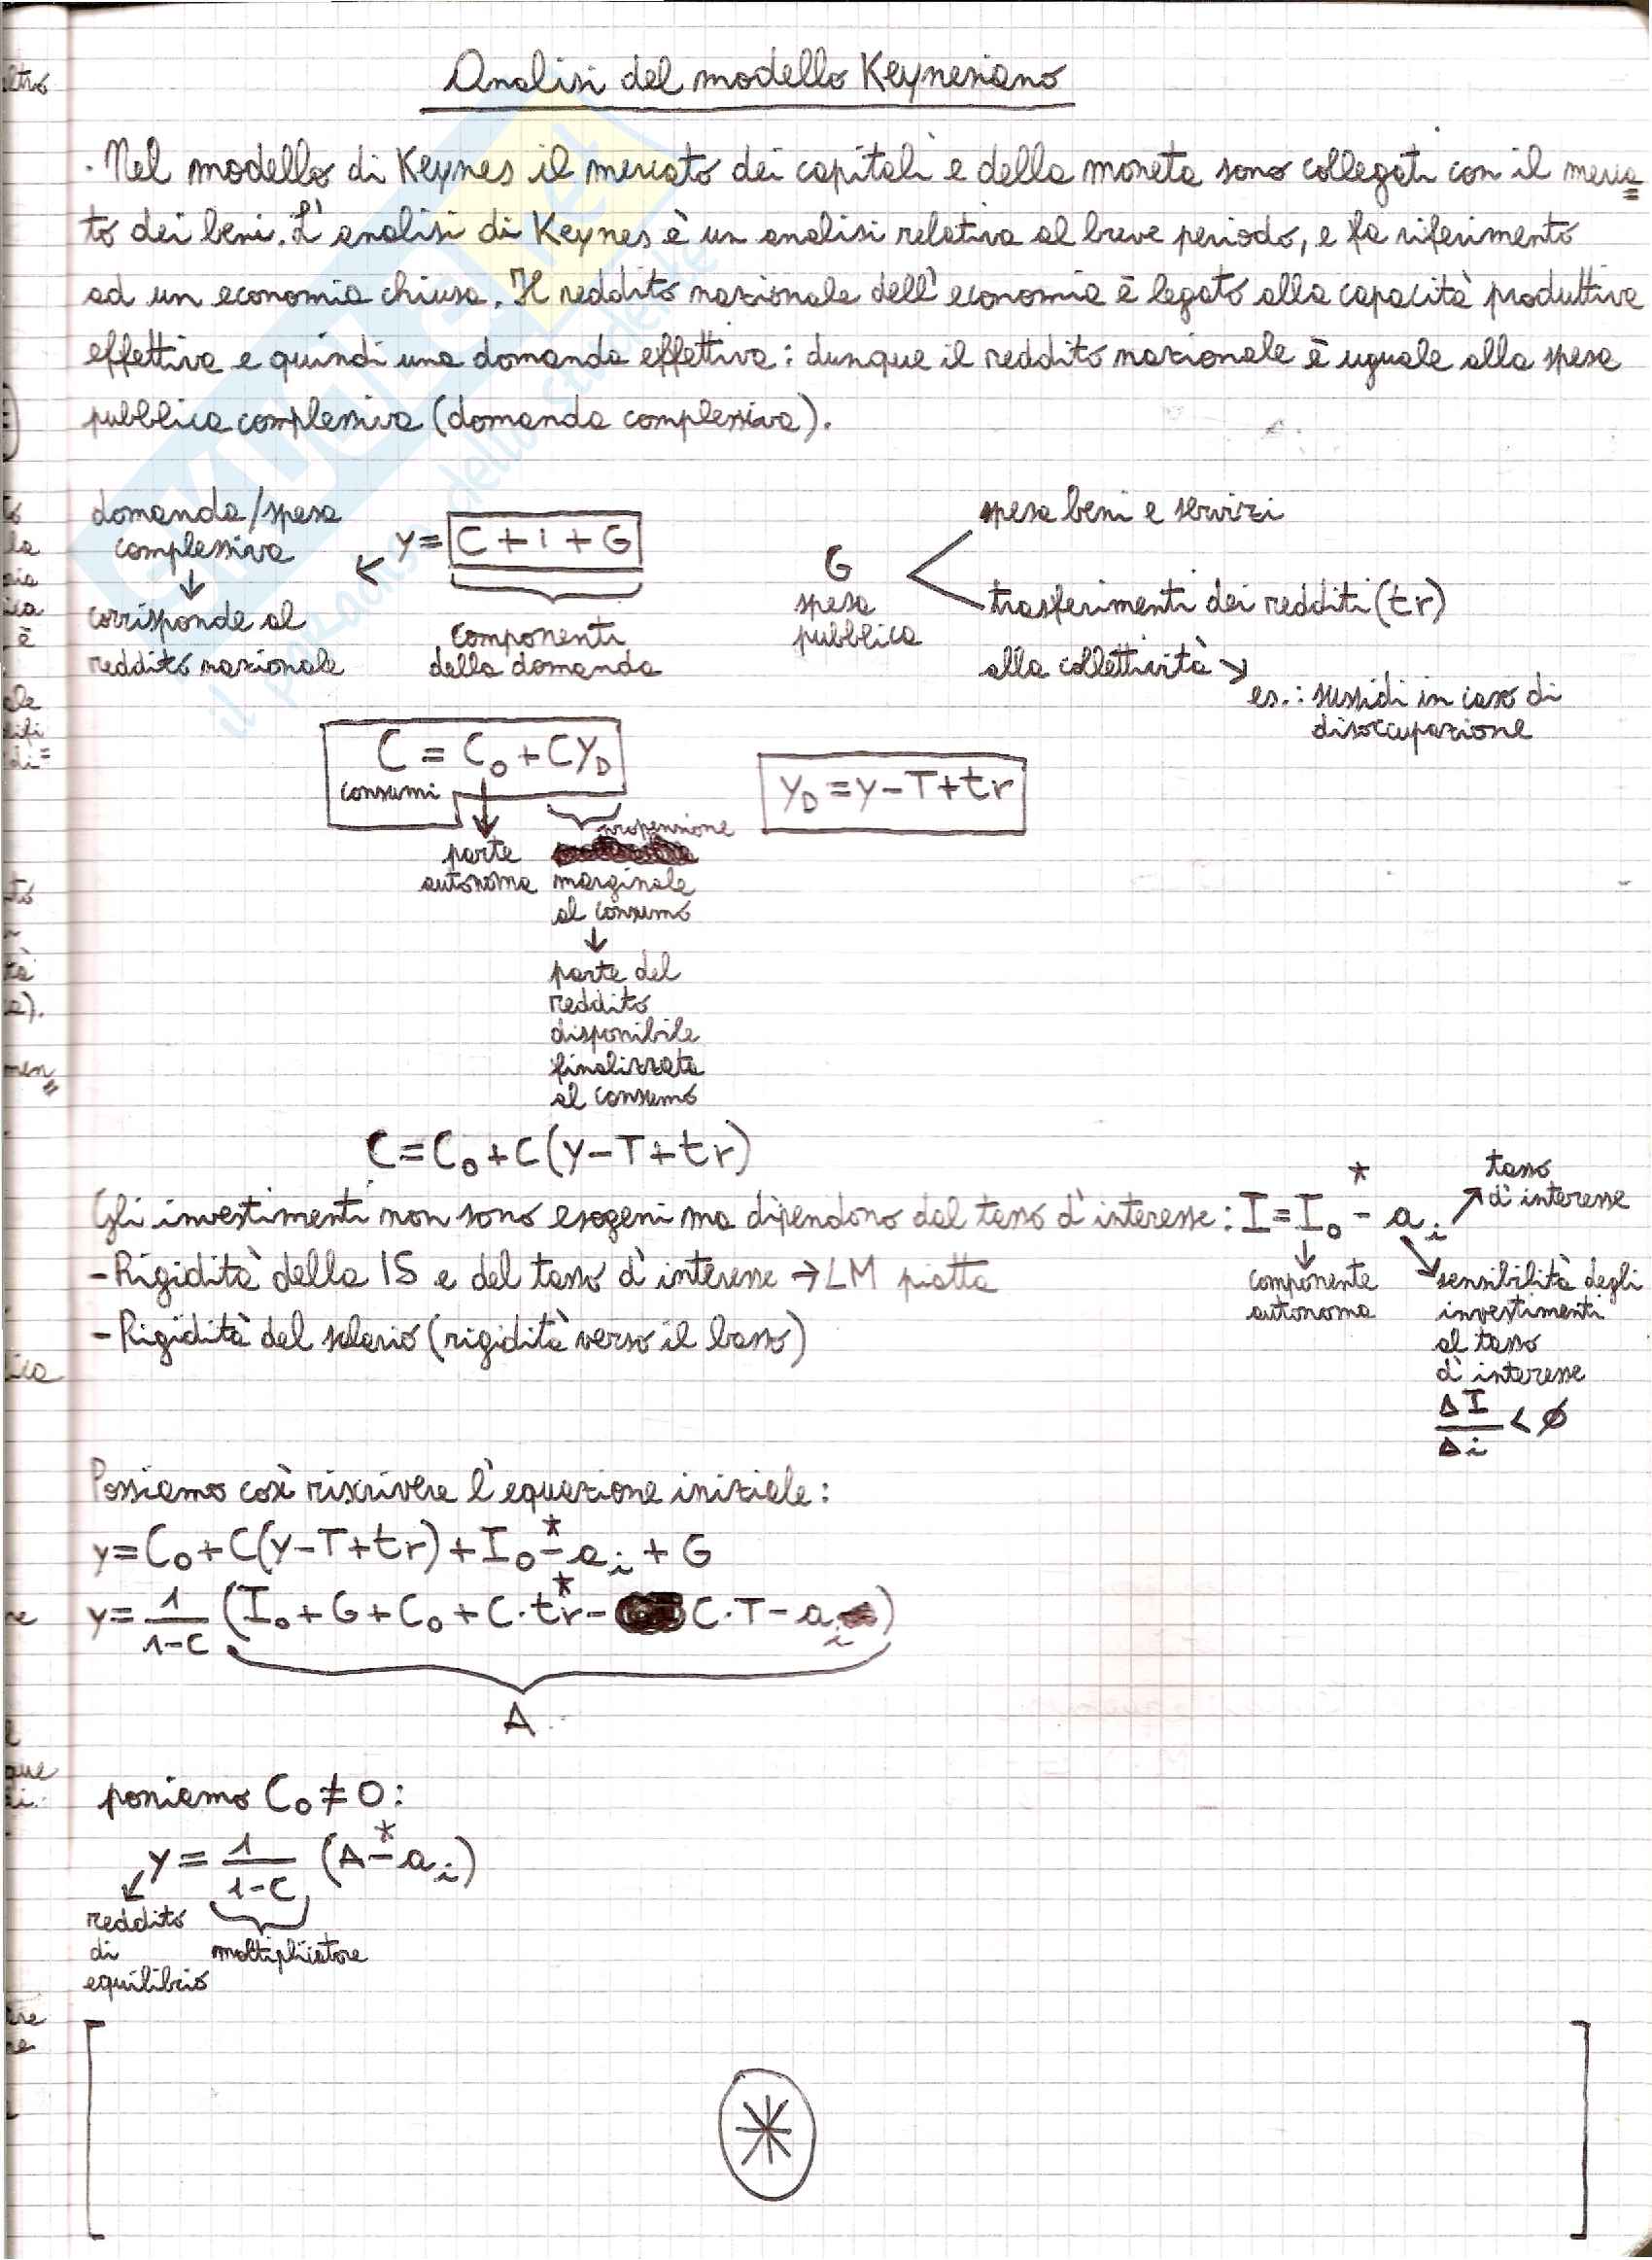 Analisi del modello Keynesiano
· Nel modello di Keynes il mercato dei capitali e della moneta sono collegati con il merca=
to dei beni. L'analisi di Keynes è un analisi relativa al breve periodo, e fa riferimento
ad un economia chiusa. Il reddito nazionale dell'economia è legato alla capacità produttiva
effettiva e quindi una domanda effettiva: dunque il reddito nazionale è uguale alla spesa
pubblica complessiva (domanda complessiva).
domanda/spesa
complessiva
↓
corrisponde al
reddito nazionale
↙ y = C + i + G
componenti
della domanda
G
spesa
pubblica
spesa beni e servizi
trasferimenti dei redditi (tr)
alla collettività ↘
es.: sussidi in caso di
disoccupazione
C = C₀ + CY_D
consumi
Y_D = y - T + tr
parte
autonoma
propensione
marginale
al consumo
↓
parte del
reddito
disponibile
finalizzata
al consumo
C = C₀ + C(y - T + tr)
Gli investimenti non sono esogeni ma dipendono dal tasso d'interesse: I = I₀ -* a i ↗ tasso d'interesse
- Rigidità della IS e del tasso d'interesse → LM piatta
- Rigidità del salario (rigidità verso il basso)
↓
componente
autonoma
↘ sensibilità degli
investimenti
al tasso
d'interesse
ΔI/Δi < ∅
Possiamo così riscrivere l'equazione iniziale:
y = C₀ + C(y - T + tr) + I₀ -* a i + G
y = 1/1-C (I₀ + G + C₀ + C·tr* - C·T - a i)
A
poniamo C₀ ≠ 0:
y = 1/1-C (A -* a i)
↙
reddito
di
equilibrio
moltiplicatore
[ * ]
SKUOLA.net
il paradiso dello studente